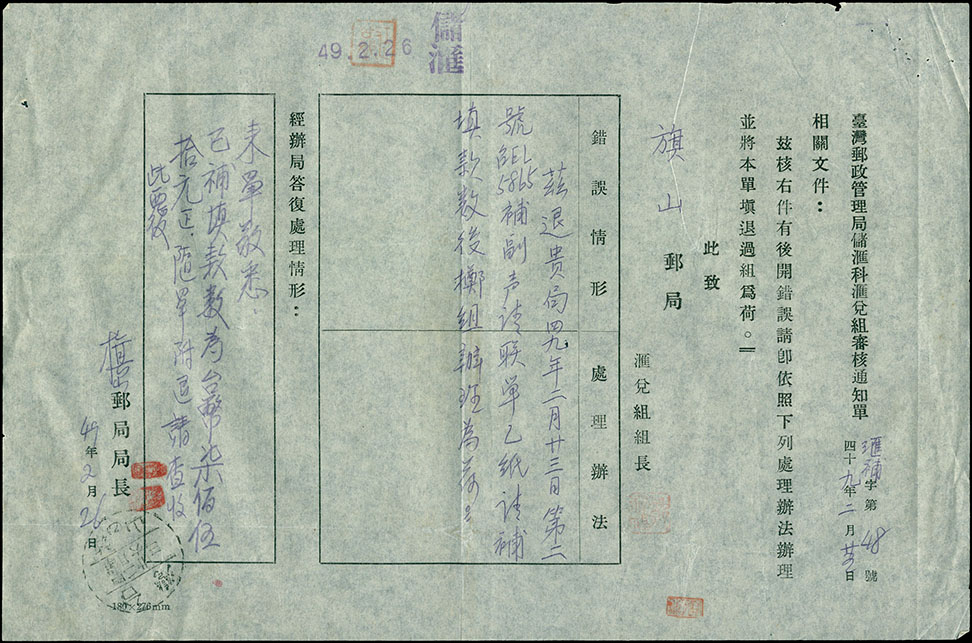 臺灣郵政管理局儲滙科滙兌組審核通知單
滙補字第48號
四十九年二月廿 日
相關文件：
茲核右件有後開錯誤請卽依照下列處理辦法辦理
並將本單填退過組爲荷。
此致
旗山郵局
滙兌組組長
錯誤情形
處理辦法
茲退貴局四九年二月廿三日第二
號 5865補副声请联单乙纸请補
填款数後擲組辦理為荷
儲滙
49.2.26
經辦局答復處理情形：
来單敬悉
已補填款数為台幣柒佰伍
拾元正，隨單附 請查收
此覆
旗山郵局局長
49年2月26日
180×276mm